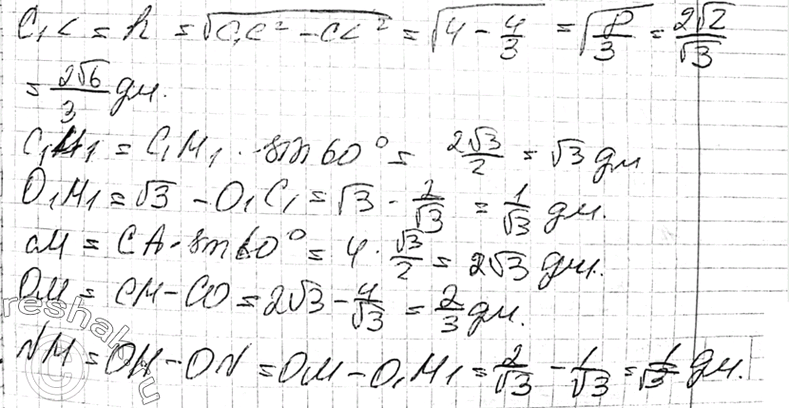 C₁K = h = √(C₁C² - CK²) = √(4 - 4/3) = √(8/3) = 2√2/√3
= 2√6/3 дм.
C₁M₁ = C₁M₁ · sin 60° = 2√3/2 = √3 дм
O₁M₁ = √3 - O₁C₁ = √3 - 2/√3 = 1/√3 дм.
CM = CA · sin 60° = 4 · √3/2 = 2√3 дм.
OM = CM - CO = 2√3 - 4/√3 = 2/3 дм.
NM = OM - ON = OM - O₁M₁ = 2/√3 - 1/√3 = 1/√3 дм.
reshak.ru